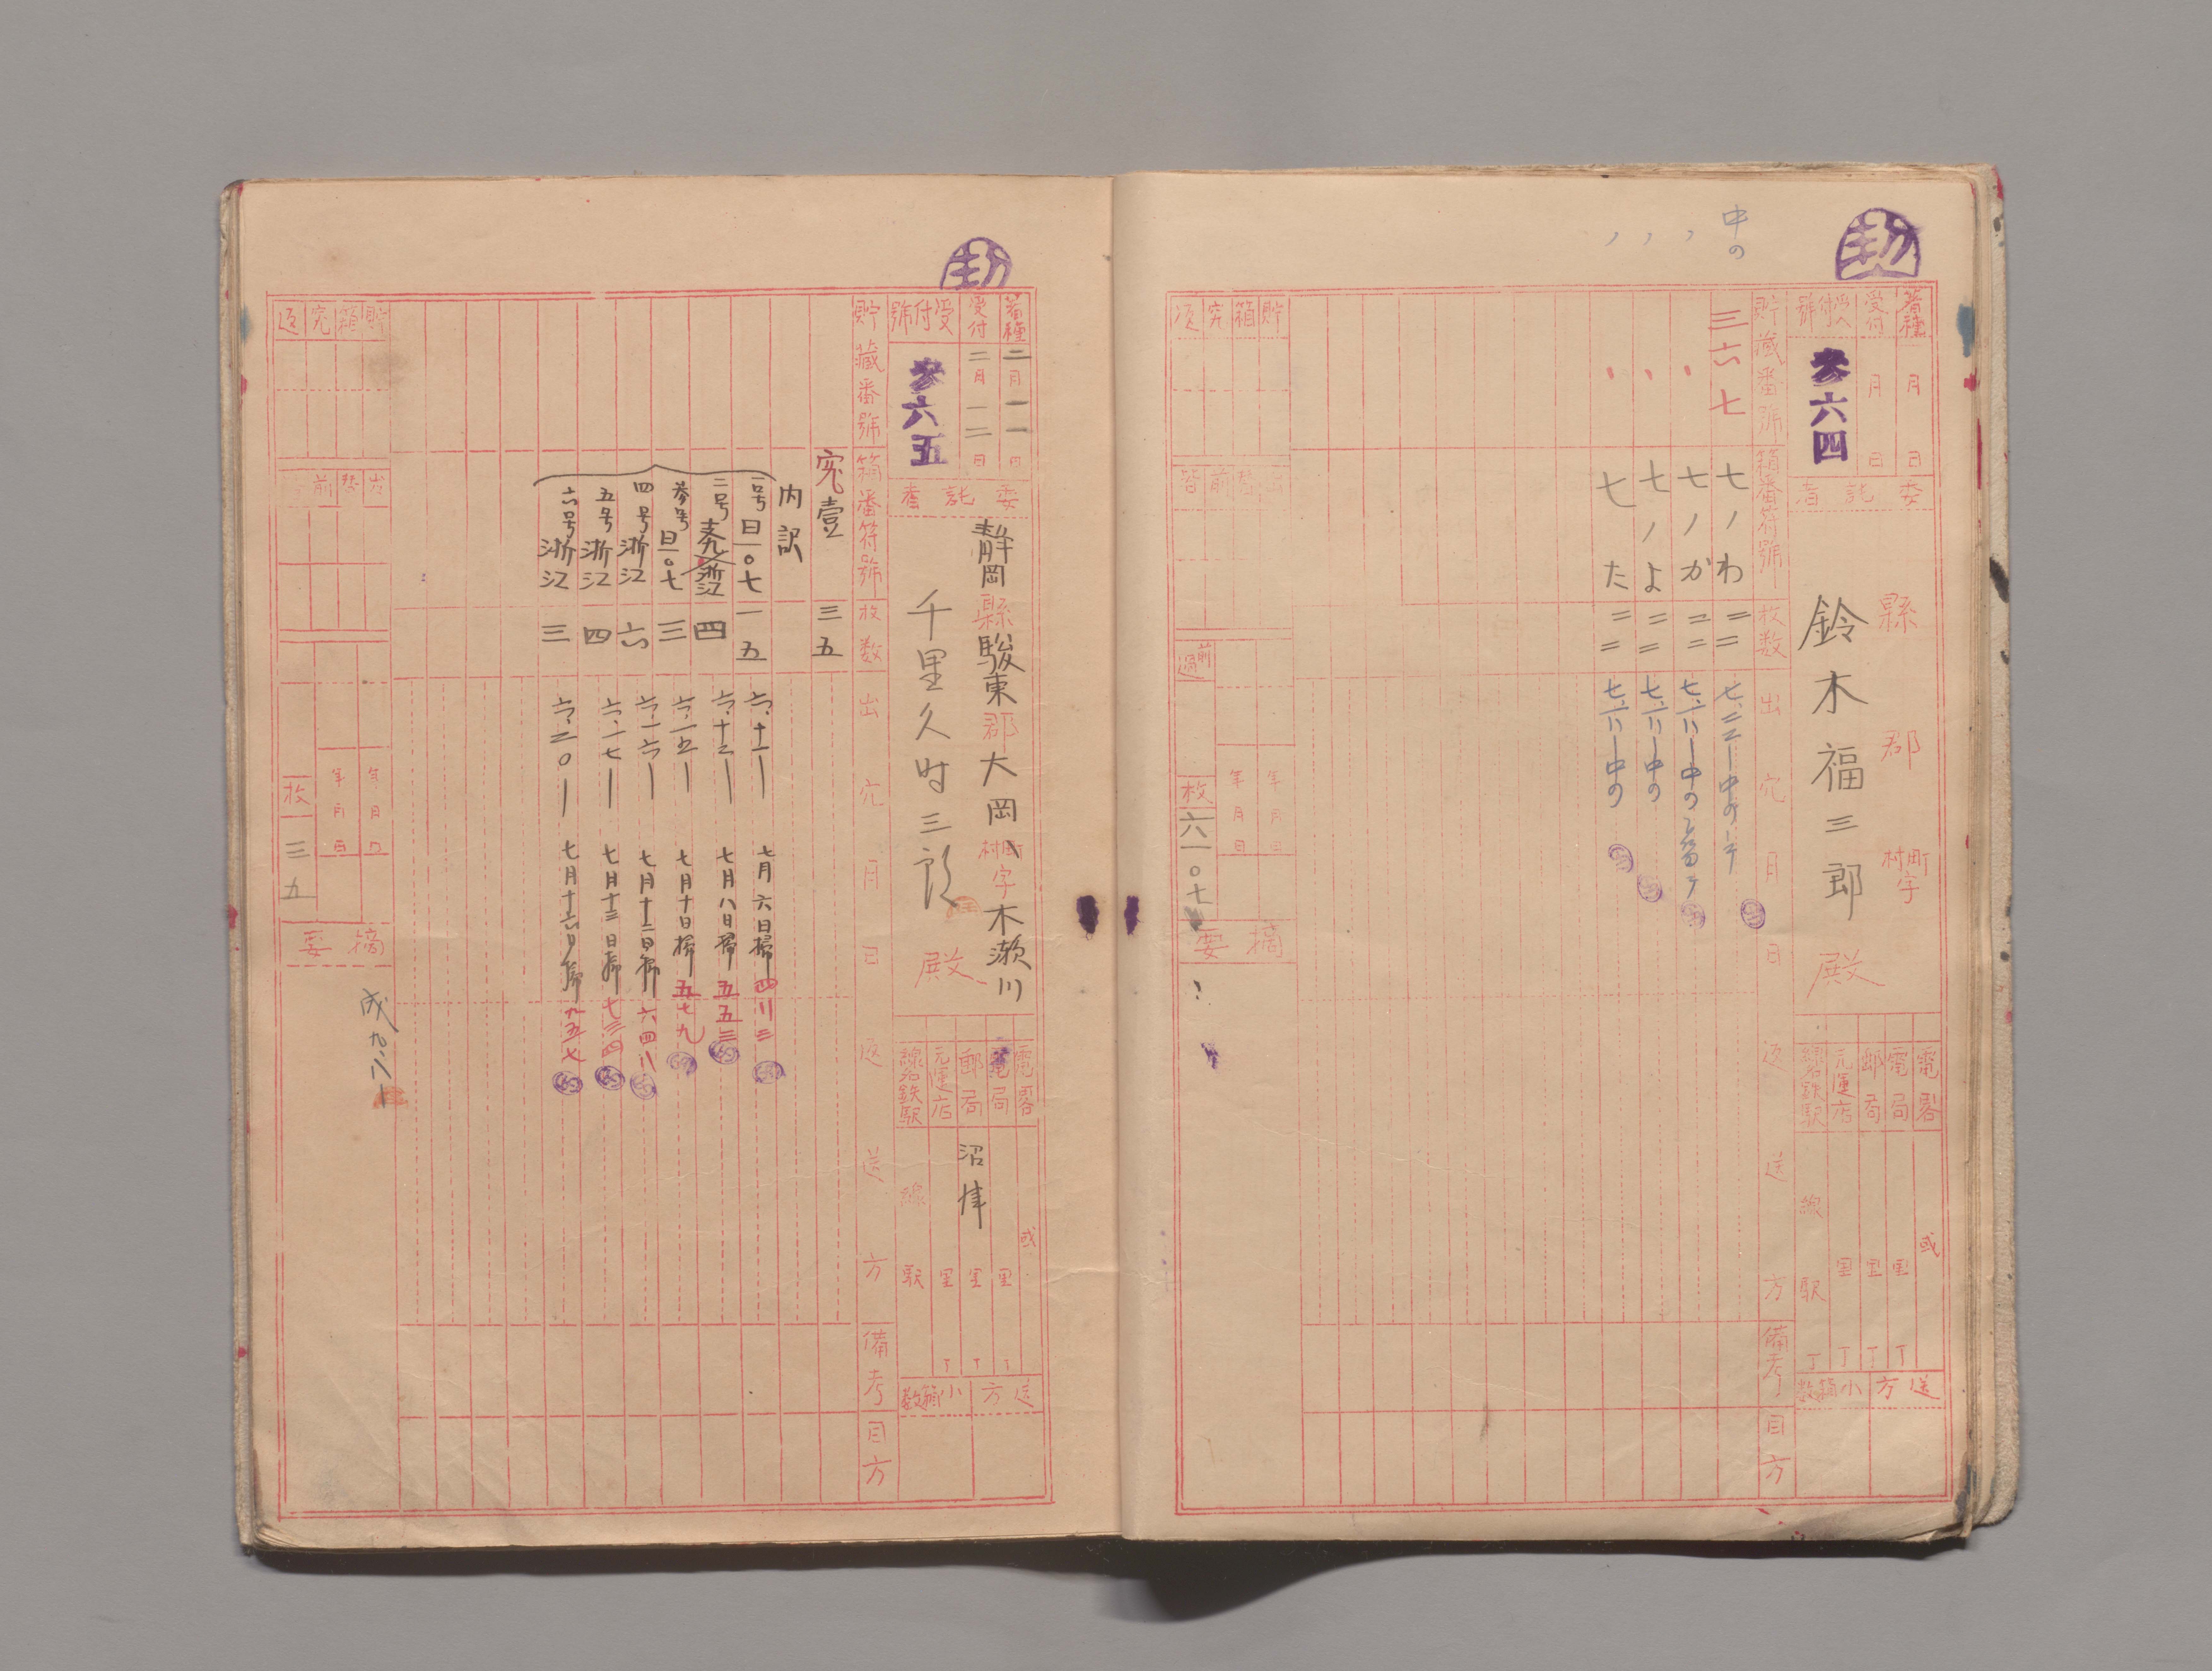 中の
着種
月
日
受付
月
日
受付號
参六四
委託者
縣
郡
町村字
鈴木福三郎
殿
電略
電局
郵局
元運店
線名鉄駅
或
里
里
里
線
駅
丁
丁
丁
丁
送方
小箱数
貯蔵番號
箱番符號
枚数
出穴月日
返送方
備考
目方
三六七
七ノわ
二二
七、二二―中の
七ノか
二二
七ノよ
二二
七 た
二二
貯箱穴返
年月日
年月日
前過
枚
六一〇七
摘要
着種
二月一一日
受付
二月一二日
受付號
参六五
委託者
静岡縣駿東郡大岡村町字木瀬川
千里久时三郎
殿
電略
電局
郵局
元運店
線名鉄駅
或
里
里
里
沼津
線
駅
丁
丁
丁
送方
小箱数
貯蔵番號
箱番符號
枚数
出穴月日
返送方
備考
目方
穴壹
三五
内訳
一号
日一〇七
一五
六、十一―
七月六日掃
二号
浙江
四
六、十二―
七月八日掃
五五三
参号
日一〇七
三
六、一五―
七月十日掃
五七九
四号
浙江
六
六、一六―
七月十二日掃
六四八
五号
浙江
四
六、一七―
七月十三日掃
七三四
六号
浙江
三
六、二〇―
七月十六日掃
九五七
貯箱穴返
年月日
年月日
枚
三五
摘要